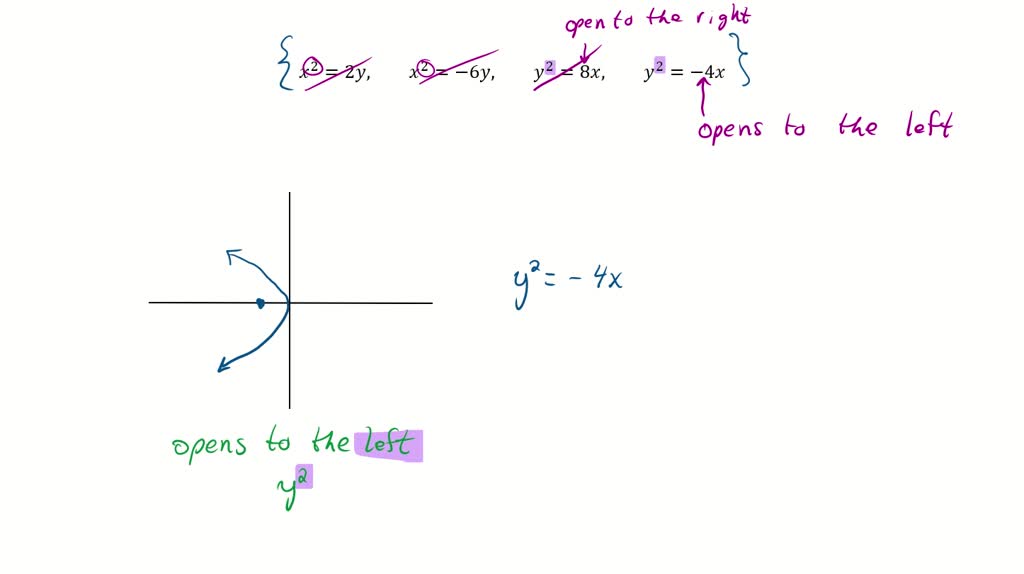 open to the right
{x² = 2y, x² = −6y, y² = 8x, y² = −4x}
opens to the left
y² = - 4x
opens to the left
y²